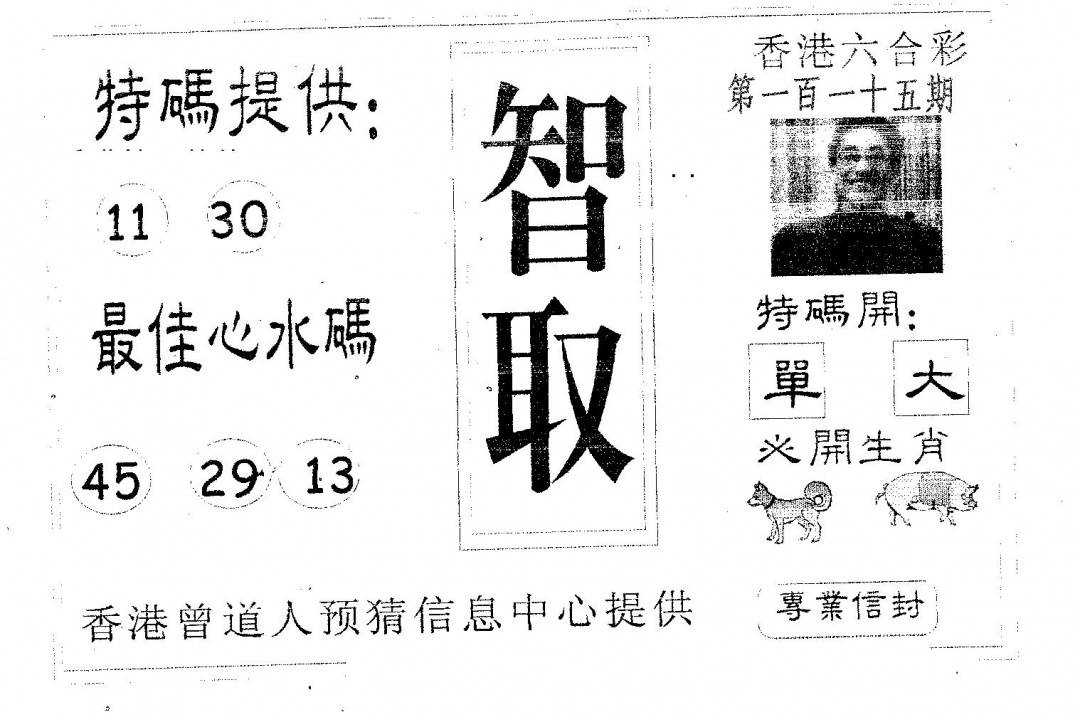 特碼提供:
11 30
最佳心水碼
45 29 13
智取
香港六合彩
第一百一十五期
特碼開:
單 大
必開生肖
專業信封
香港曾道人预猜信息中心提供